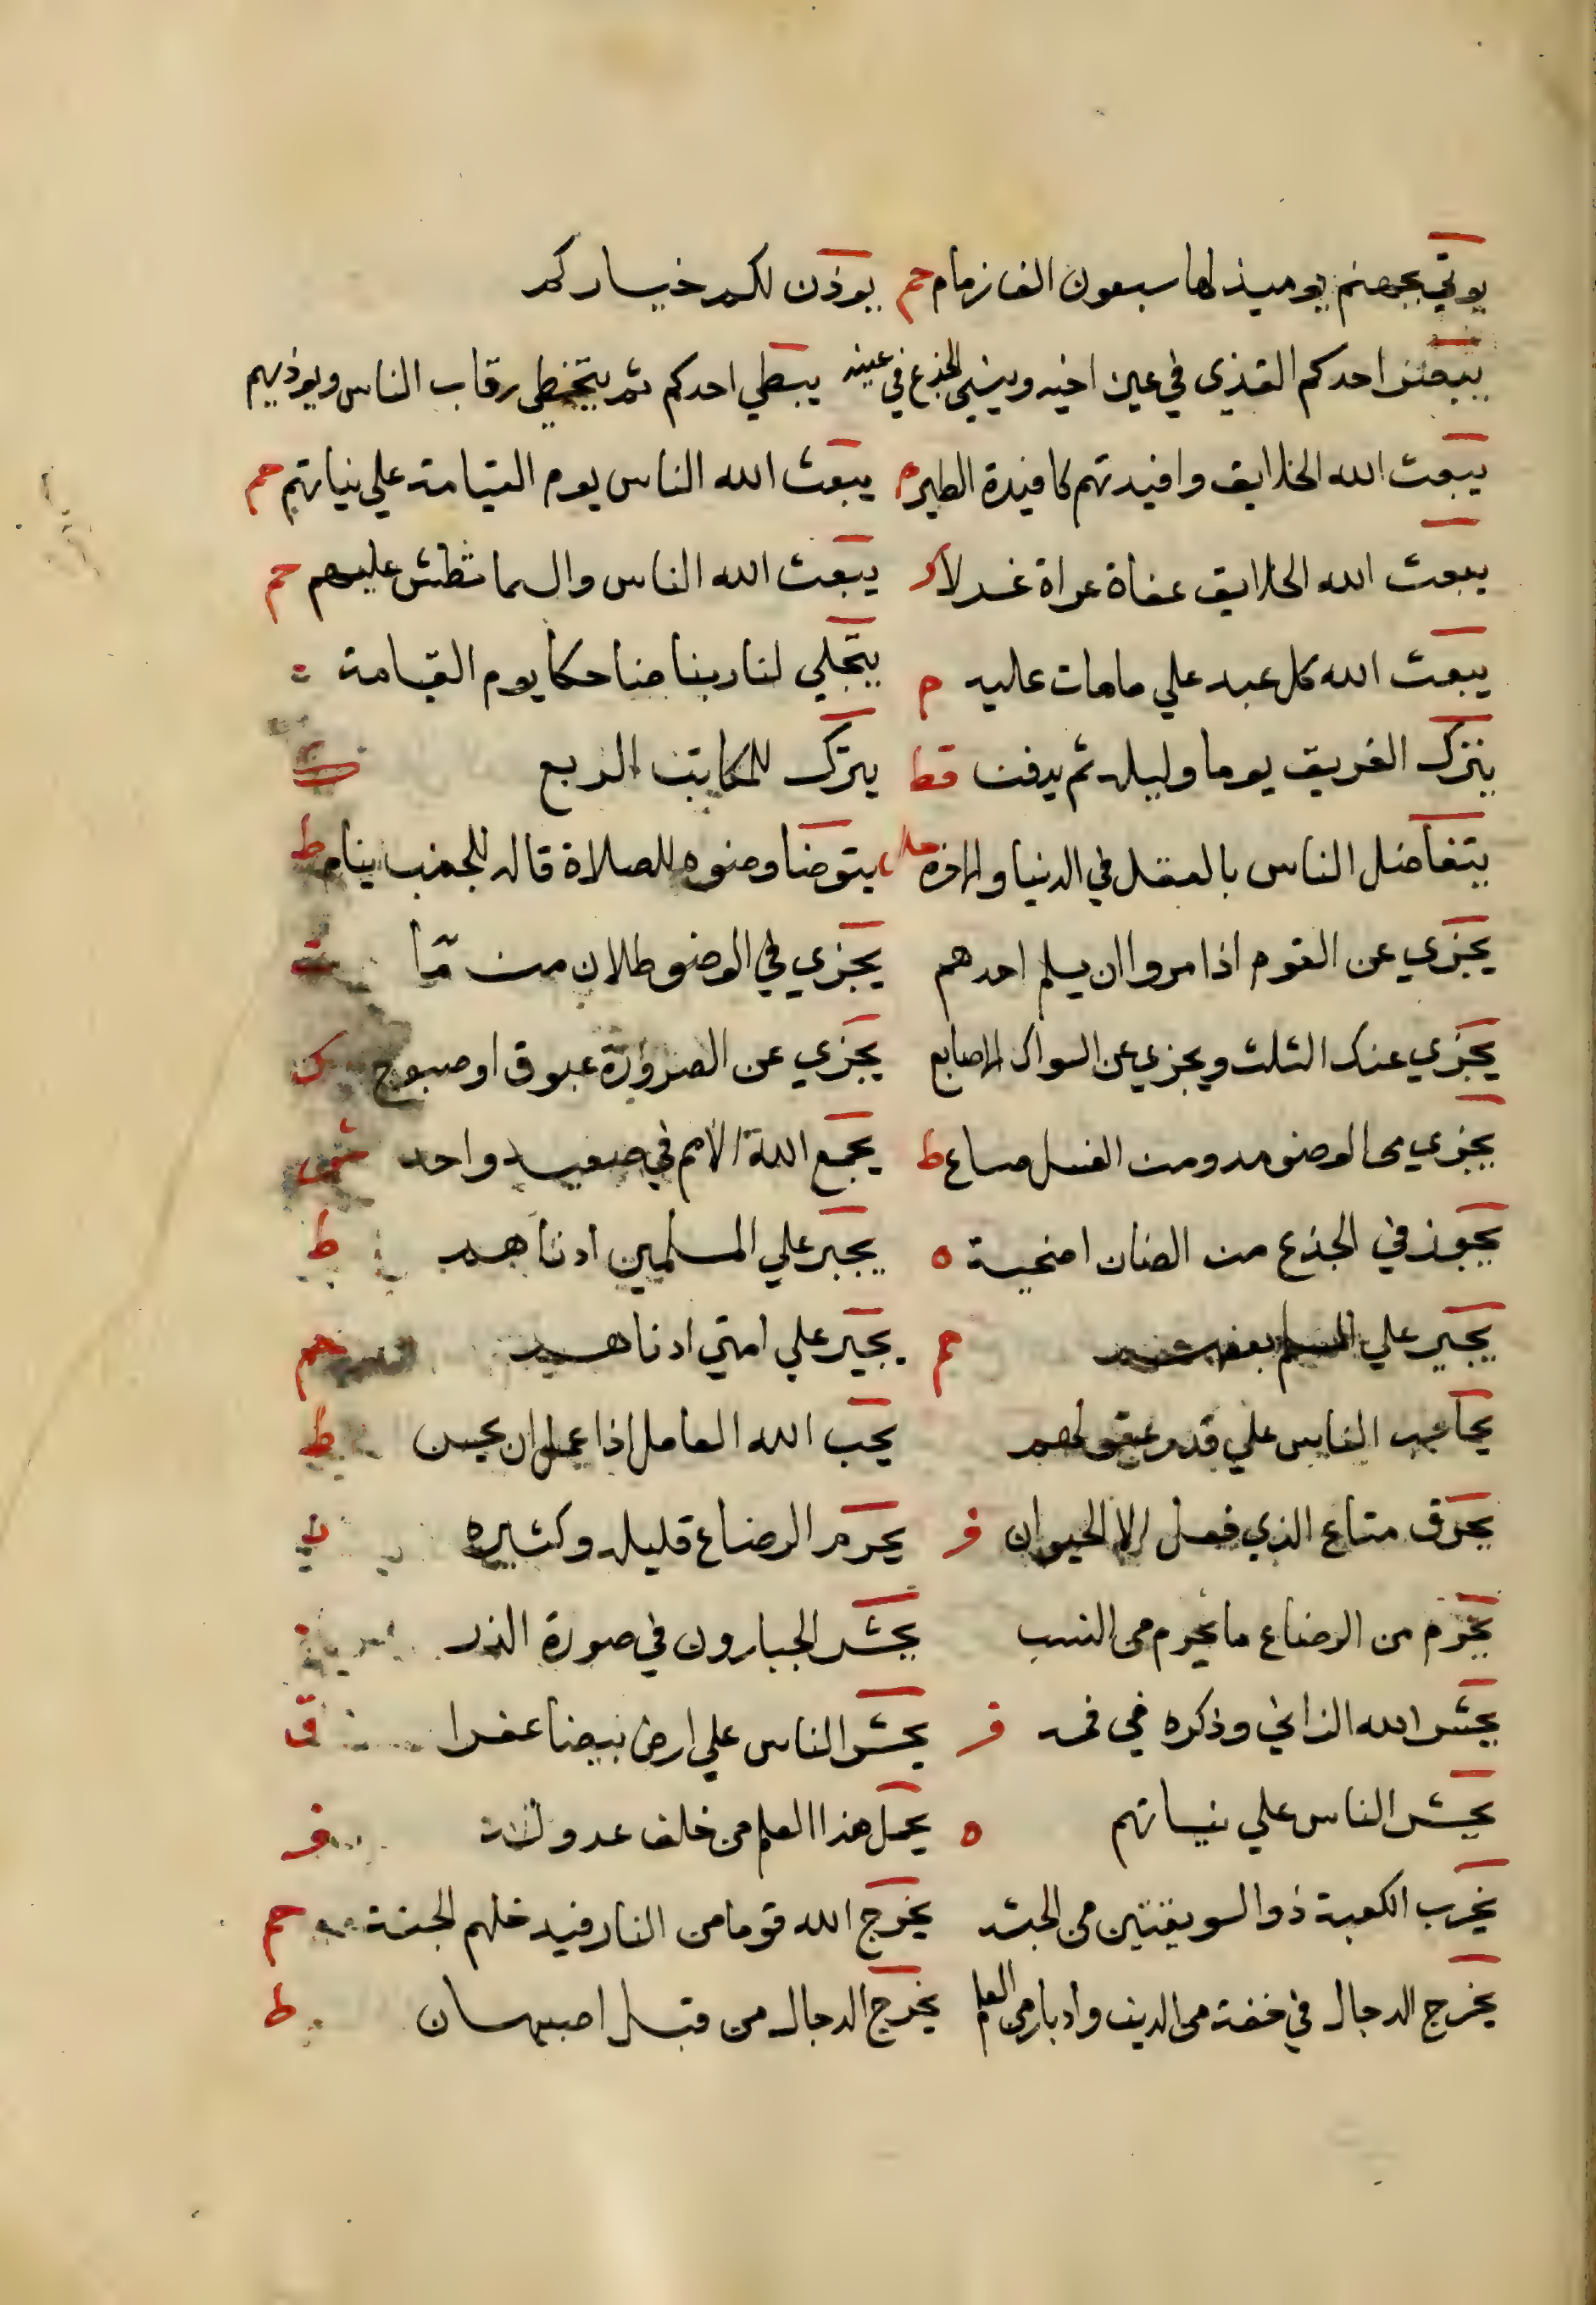 يوتي بجهنم يوميذ لها سبعون الف زمام حم يوذن لكم خياركم
يبصر احدكم القذي في عين اخيه وينسي الجذع في عينه يبطي احدكم ثم يتخطي رقاب الناس ويوذيهم
يبعث الله الخلايق وافيدتهم كافيدة الطير م يبعث الله الناس يوم القيامة علي نياتهم حم
يبعث الله الخلايق حفاة عراة غرلا يبعث الله الناس والسما تطش عليهم حم
يبعث الله كل عبد علي ما مات عليه م يتجلي لنا ربنا ضاحكا يوم القيامة
يترك الغريق يوما وليله ثم يدفن قط يترك للمكاتب الربع
يتفاضل الناس بالعقل في الدنيا والاخره يتوضا وضوه للصلاة قاله للجنب ينام ط
يجزي عن القوم اذا مروا ان يسلم احدهم يجزي في الوضو رطلان من ما
يجزي عنك الثلث ويجزي عن السواك الاصابع يجزي عن الضرورة غبوق او صبوح ك
يجزي من الوضو مد ومن الغسل صاع ط يجمع الله الامم في صعيد واحد
يجوز في الجذع من الضان اضحية ه يجبر علي المسلمين ادناهم ط
يجير علي المسلم بعضهم حم يجير علي امتي ادناهم حم
يحاسب الناس علي قدر عقولهم يحب الله العامل اذا عمل ان يحسن ط
يحرق متاع الذي فعل الا الحيوان يحرم الرضاع قليله وكثيره
يحرم من الرضاع ما يحرم من النسب يحشر الجبارون في صورة الذر
يحشر الله الزاني وذكره في فمه يحشر الناس علي ارض بيضا عفرا ق
يحشر الناس علي نياتهم ه يحمل هذا العلم من خلف عدوله
يخرب الكعبة ذو السويقتين من الحبشه يخرج الله قوما من النار فيدخلهم الجنة حم
يخرج الدجال في خفة من الدين وادبار من العلم يخرج الدجال من قبل اصبهان ط